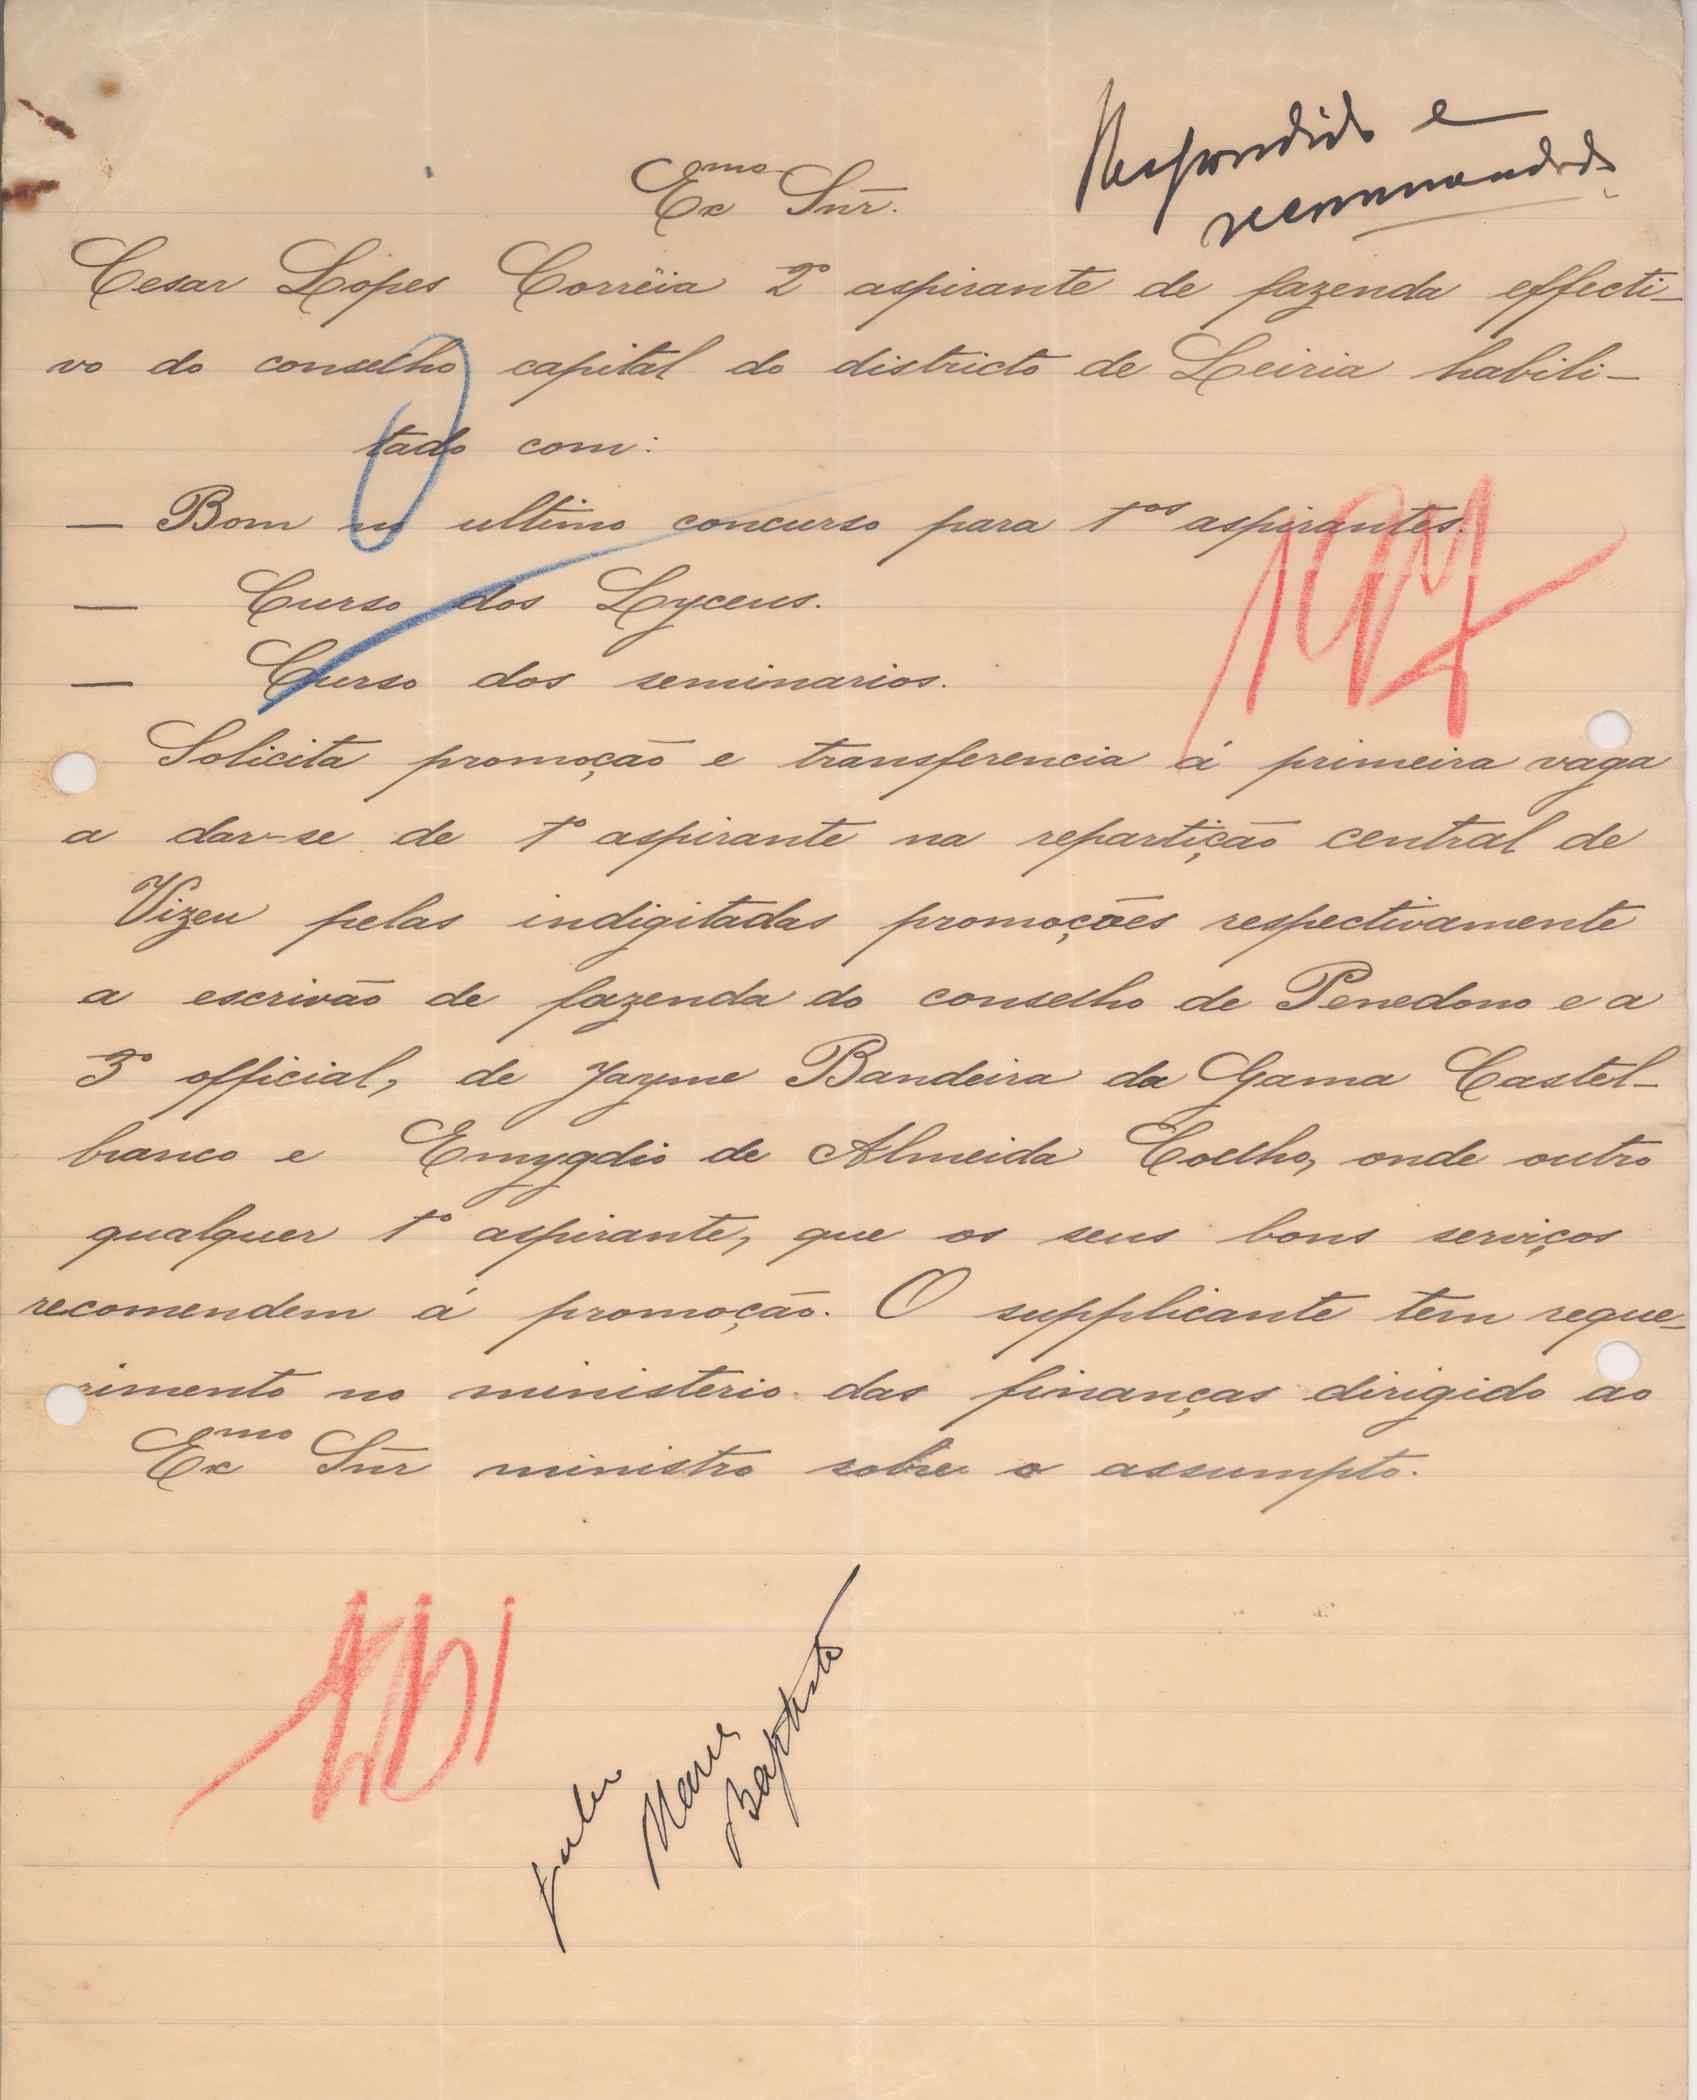 Respondido e
recommendado
Exmo Snr.
Cesar Lópes Corrêia 2º aspirante de fazenda effecti-
vo do conselho capital do districto de Leiria habili-
tado com:
— Bom no ultimo concurso para 1os aspirantes.
— Curso dos Lyceus.
— Curso dos seminarios.
Solicita promoção e transferencia á primeira vaga
a dar-se de 1º aspirante na repartição central de
Vizeu pelas indigitadas promoções respectivamente
a escrivão de fazenda do conselho de Penedono e a
3º official, de Jayme Bandeira da Gama Castel-
branco e Emygdio de Almeida Coelho, onde outro
qualquer 1º aspirante, que os seus bons serviços
recomendem á promoção. O supplicante tem reque-
rimento no ministerio das finanças dirigido ao
Exmo Snr ministro sobre o assumpto.
Maria
Baptista